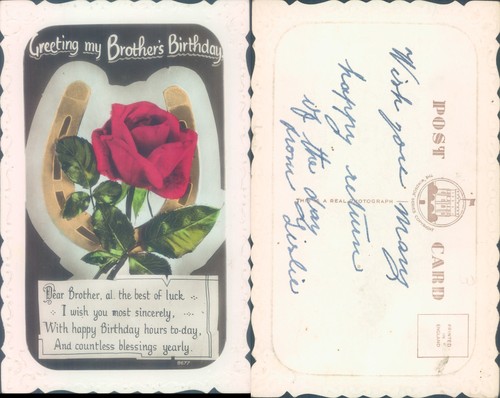 Greeting my Brother's Birthday
Dear Brother, al. the best of luck
I wish you most sincerely,
With happy Birthday hours to-day,
And countless blessings yearly.
POST CARD
THIS IS A REAL PHOTOGRAPH
Wish you many
happy return
of the day
from Leslie